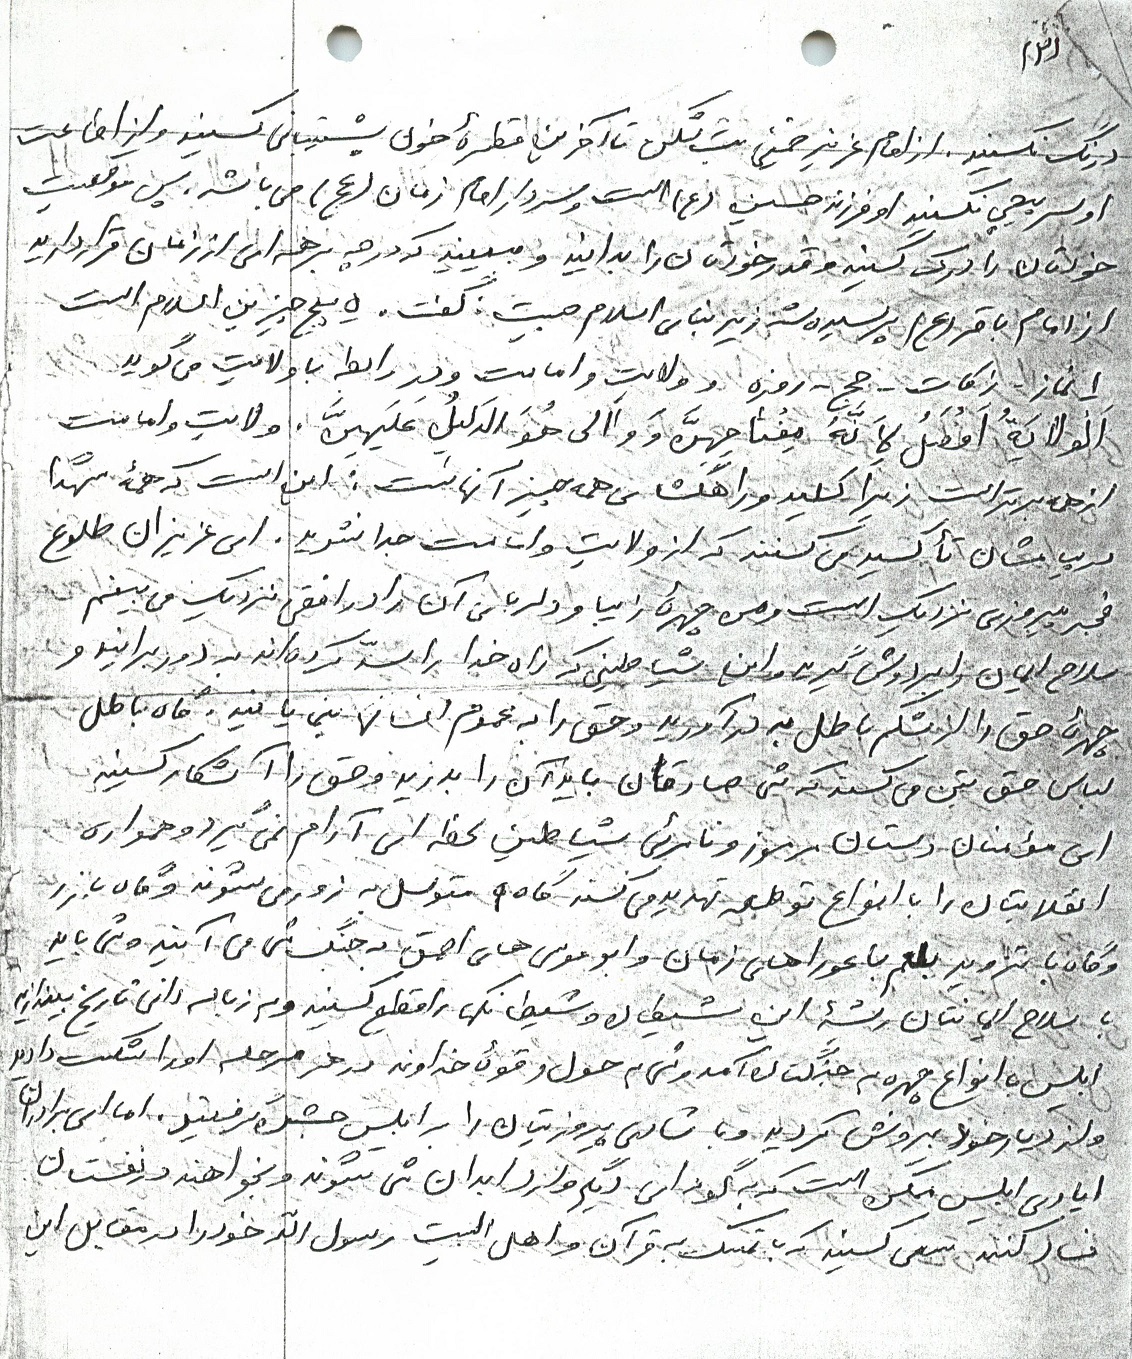 درنگ نکنید. از امام عزیز خمینی بت شکن تا آخرین قطرهٔ خون پشتیبانی کنید و از اطاعت
او سرپیچی نکنید او فرزند حسین (ع) است و سردار امام زمان (عج) می باشد. پس موقعیت
خودتان را درک کنید و قدر خودتان را بدانید و ببینید که در چه برهه ای از زمان قرار دارید
از امام باقر (ع) پرسیده شد زیر بنای اسلام چیست: گفت. ۵ پنج چیز بنیان اسلام است
۱ نماز - زکات - حج - روزه و ولایت و امامت و در رابطه با ولایت می گوید
اَلْوِلایَةُ اَفْضَلُ لِاَنَّهُ مِفْتاحِهِنَّ وَ وَالی هُوَ الدَلیلُ عَلَیْهِنَّ. ولایت و امامت
از همه برتر است زیرا کلید و راهگشای همه چیز آنهاست: این است که همهٔ شهدا
در پیامشان تأکید می کنند که از ولایت و امامت جدا نشوید. ای عزیزان طلوع
فجر پیروزی نزدیک است و من چهرهٔ زیبا و دلربای آن را در افقی نزدیک می بینم
سلاح ایمان را بر دوش گیرید و این شیاطینی که راه خدا را سدّ کرده اند به دور برانید و
چهرهٔ حق را از شکم باطل به در آورید و حق را به عموم انسانها بنمایانید. گاه باطل
لباس حق بتن می کند که شما صادقان باید آن را بدرید و حق را آشکار کنید
ای مؤمنان دستان مرموز و نامرئی شیاطین لحظه ای آرام نمی گیرد و همواره
انقلابتان را با انواع توطئه تهدید می کنند گاه متوسل به زور می شوند و گاه با زر
و گاه با تزویر بلعم باعوراهای زمان و ابوموسی های احمق به جنگ شما می آیند و شما باید
با سلاح ایمانتان ریشهٔ این شیطان و شیطانکها را قطع کنید و به زباله دانی تاریخ بیندازید
ابلیس با انواع چهره به جنگتان آمد و شما به حول و قوهٔ خداوند در هر مرحله او را شکست دادید
و از دیار خود بیرونش کردید و با شادی پیروزیتان را بر ابلیس جشن گرفتید. اما ای برادران
ایادی ابلیس ممکن است که به گونه ای دیگر وارد ایران شما شوند و بخواهند در نفستان
فساد کنند سعی کنید که با تمسک به قرآن و اهل البیت رسول الله خود را در مقابل این